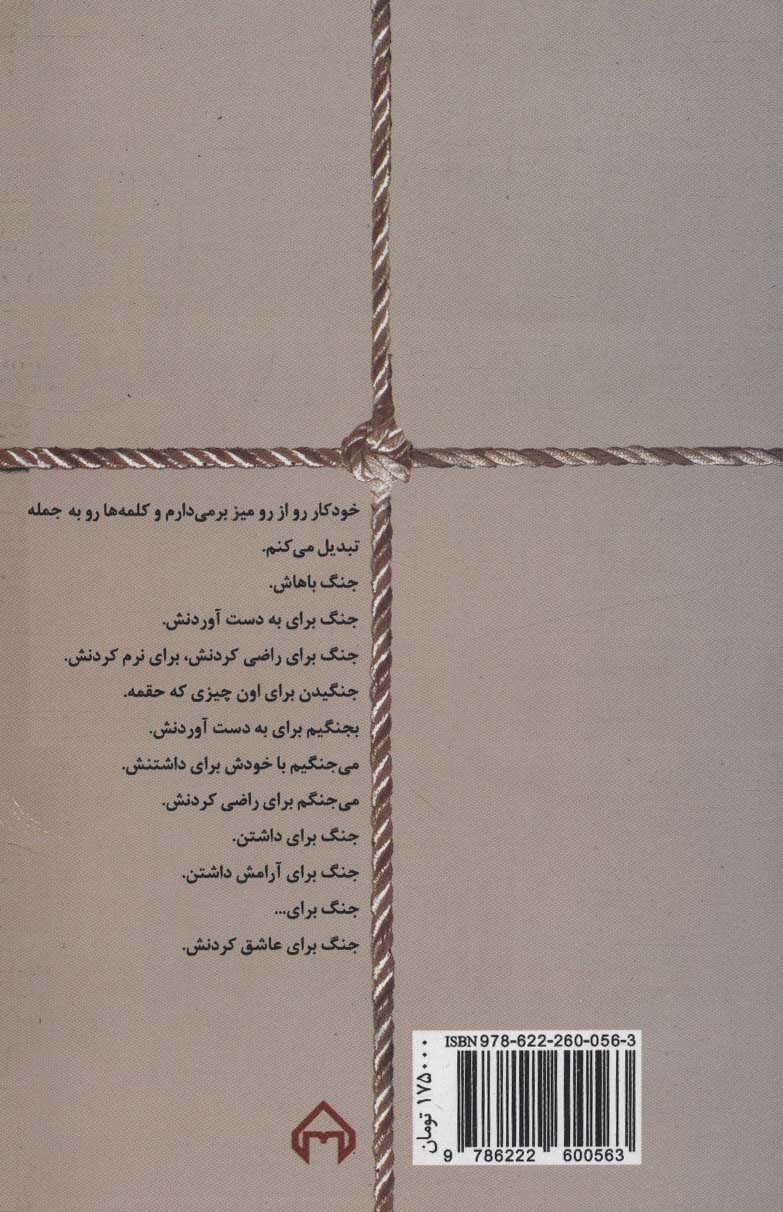 خودکار رو از رو میز برمی‌دارم و کلمه‌ها رو به جمله
تبدیل می‌کنم.
جنگ باهاش.
جنگ برای به دست آوردنش.
جنگ برای راضی کردنش، برای نرم کردنش.
جنگیدن برای اون چیزی که حقمه.
بجنگیم برای به دست آوردنش.
می‌جنگیم با خودش برای داشتنش.
می‌جنگم برای راضی کردنش.
جنگ برای داشتن.
جنگ برای آرامش داشتن.
جنگ برای...
جنگ برای عاشق کردنش.
ISBN 978-622-260-056-3
۱۷۵۰۰۰ تومان
9 786222 600563